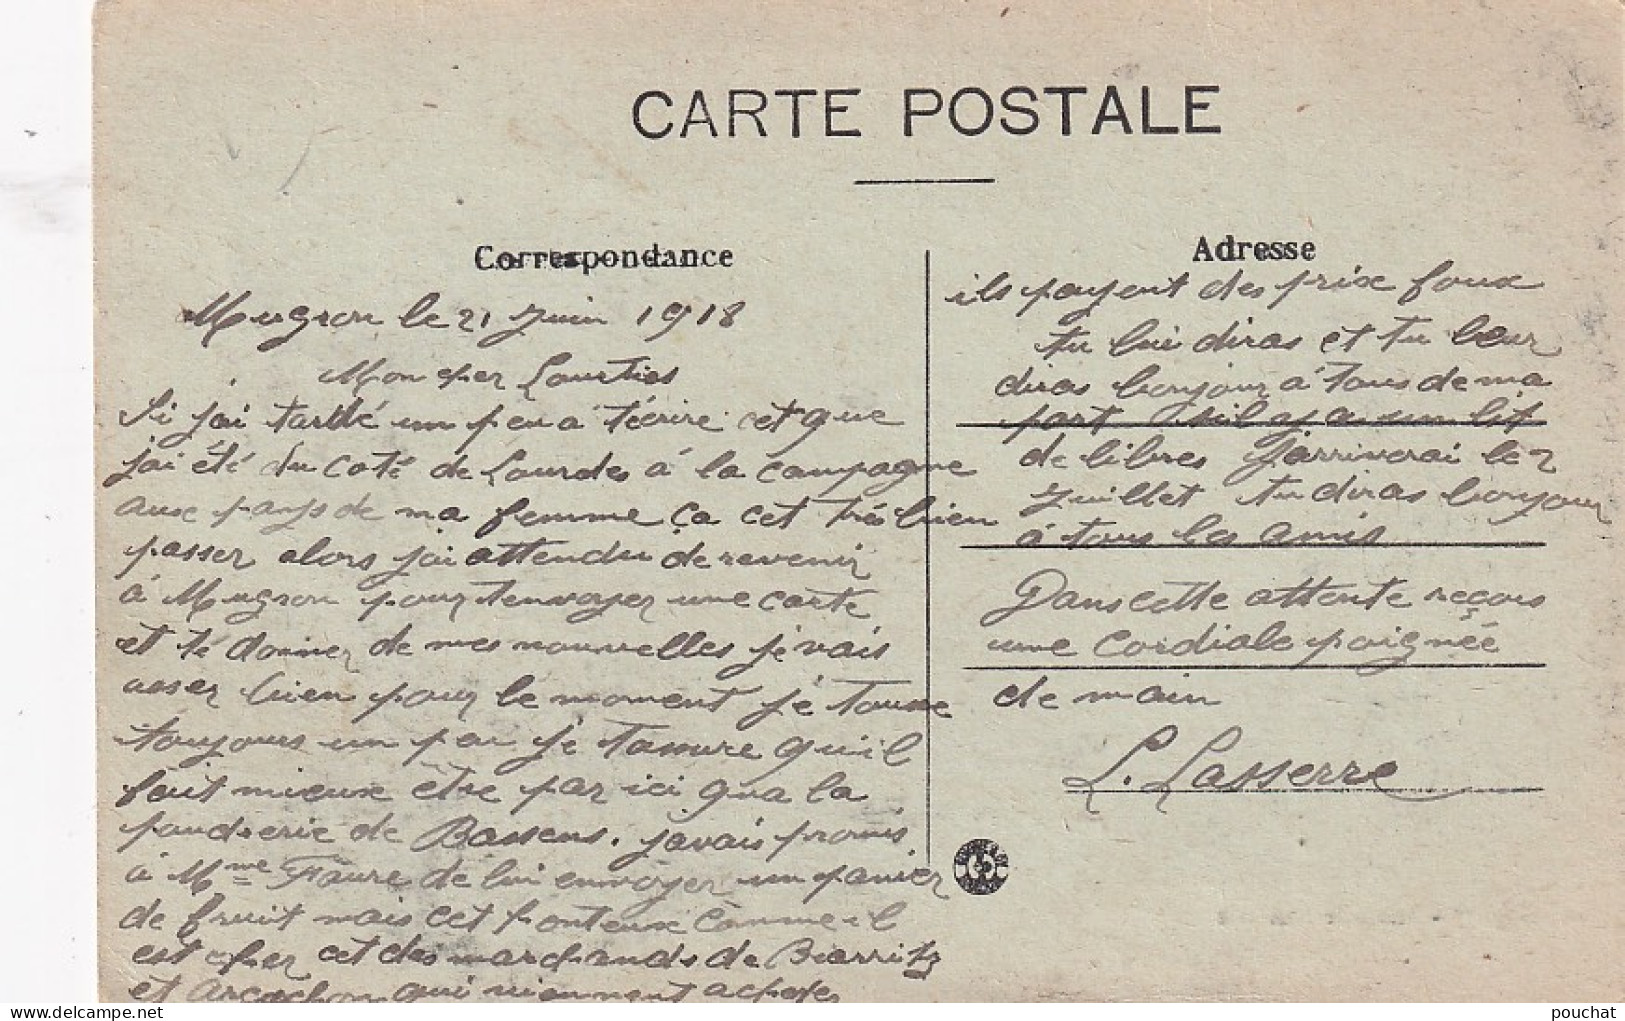 CARTE POSTALE
Correspondance
Mugron le 21 Juin 1918
Mon cher Lourties
Si j'ai tardé un peu a t'écrire cet que
j'ai été du coté de Lourdes á la campagne
aux pays de ma femme ça cet très bien
passer alors j'ai attendu de revenir
á Mugron pour tenvoyer une carte
et té donner de mes nouvelles je vais
asser bien pour le moment je tousse
toujours un peu je tassure qu'il
fait mieux être par ici qua la
poudrerie de Bassens. javais promis
á Mme Faure de lui envoyer un panier
de fruit mais cet honteux comme il
est cher cet des marchands de Biarritz
et Arcachon qui viennent acheter
Adresse
ils payent des prix foux
tu lui diras et tu leur
diras bonjour a tous de ma
part sil y a un lit
de libres J'arriverai le 2
Juillet tu diras bonjour
á tous les amis
Dans cette attente reçois
une cordiale poignée
de main
L. Lasserre
pouchat
www.delcampe.net